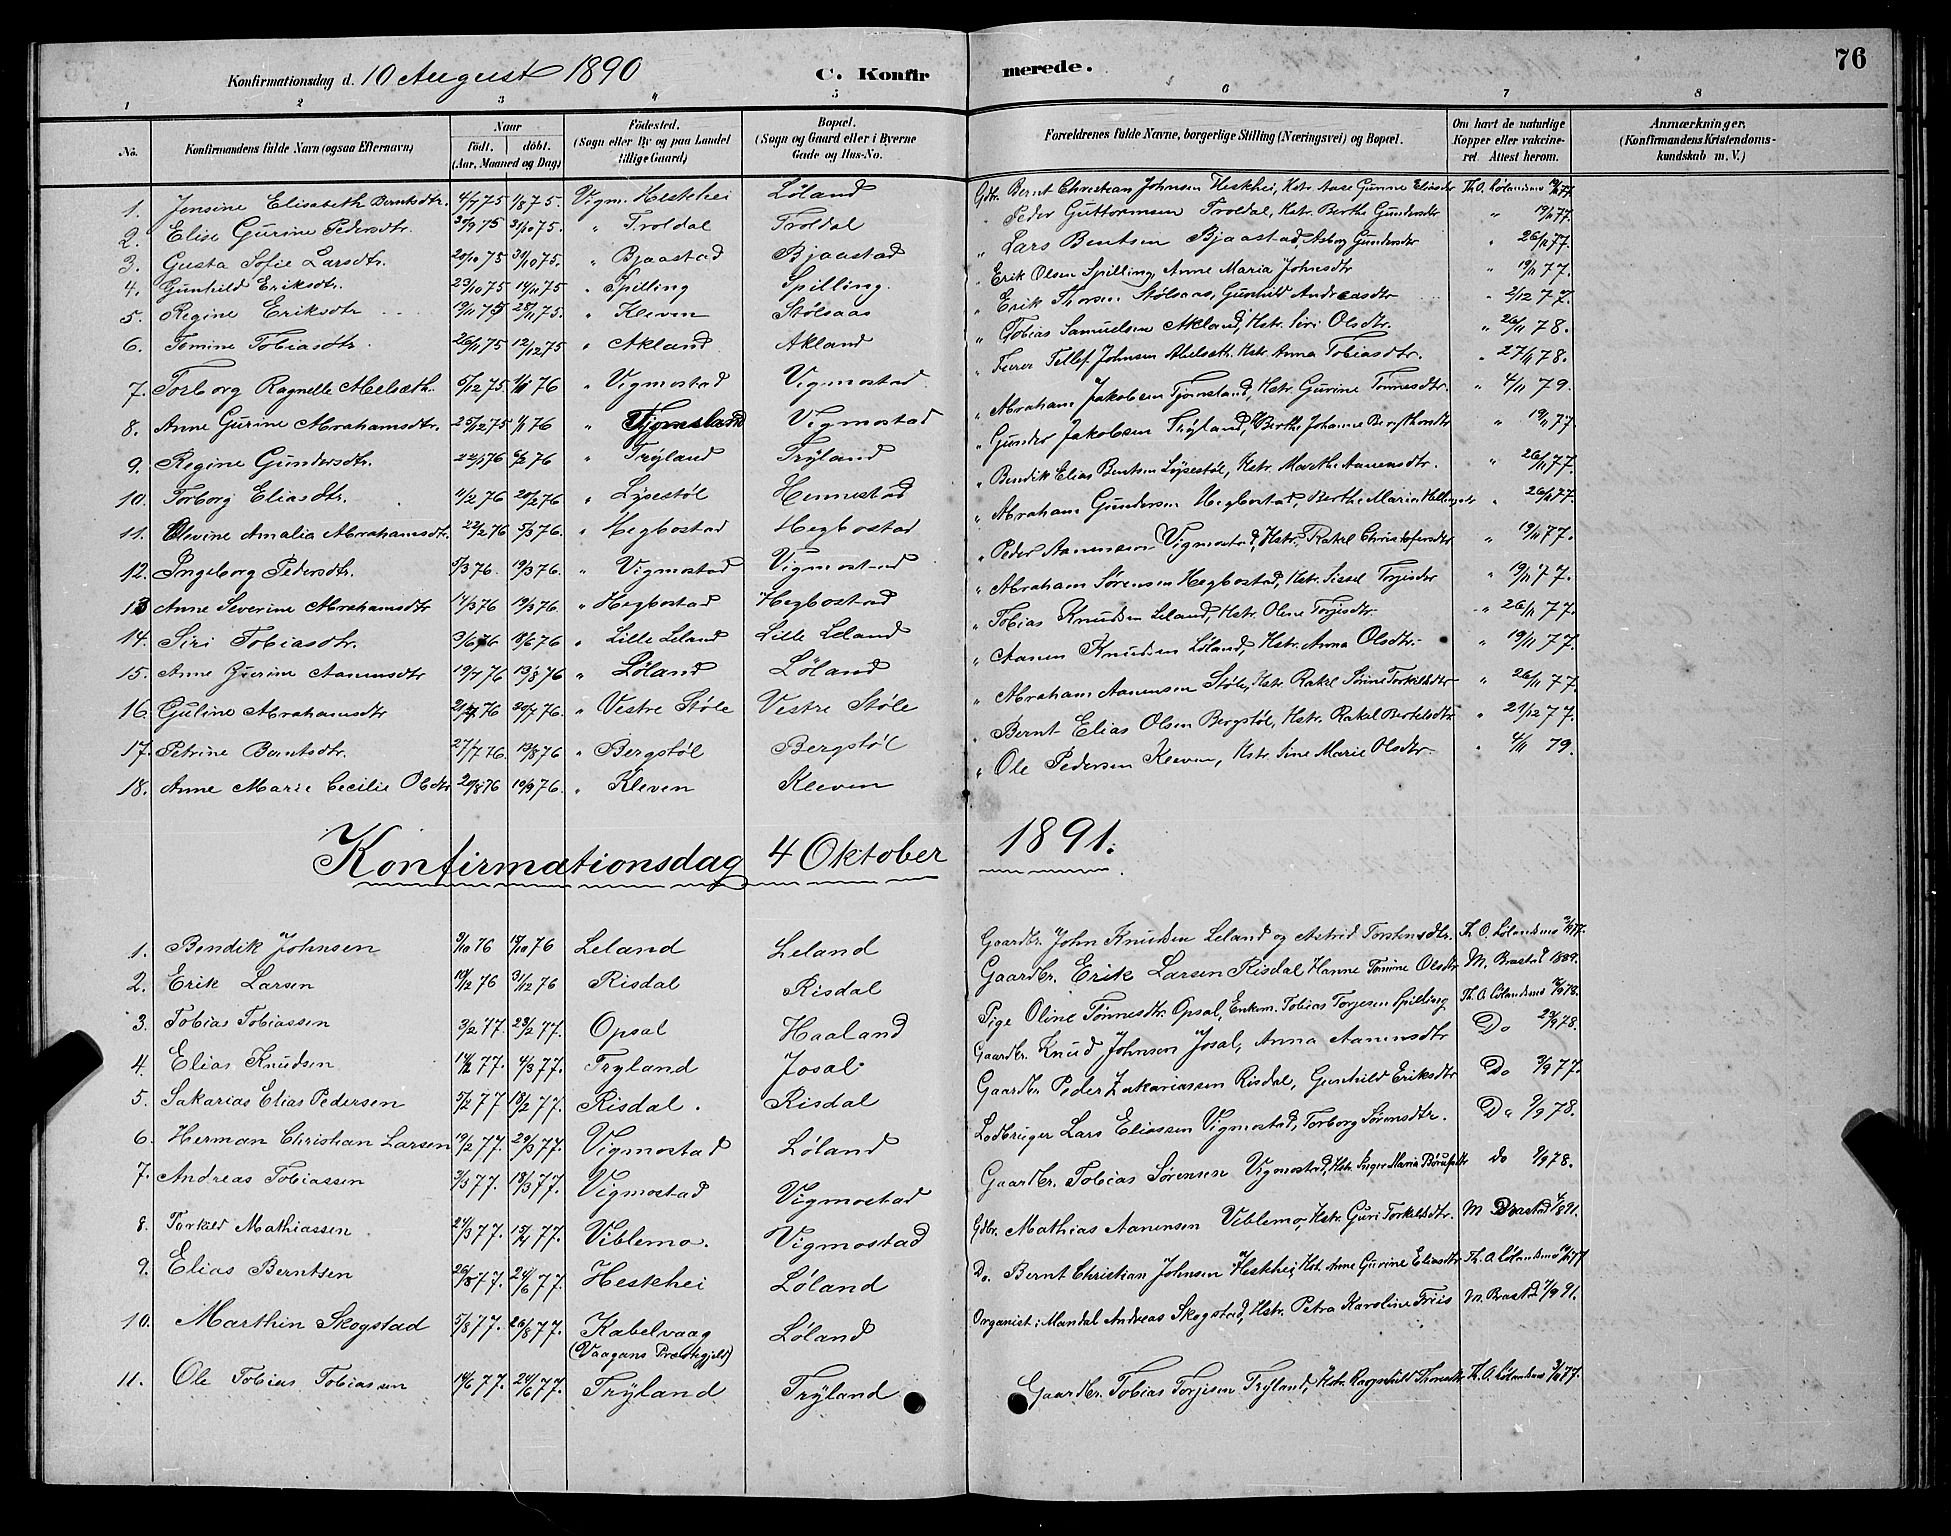 Konfirmationsdag d. 10 August 1890 C. Konfirmerede. 76
1 2 3 4 5 6 7 8
No. Konfirmandens fulde Navn (ogsaa Efternavn) Naar födt. döbt. (Aar, Maaned og Dag) Födested. (Sogn eller By og paa Landet tillige Gaard) Bopæl. (Sogn og Gaard eller i Byerne Gade og Hus-No. Forældrenes fulde Navne, borgerlige Stilling (Næringsvei) og Bopæl. Om havt de naturlige Kopper eller vakcineret. Attest herom. Anmærkninger, (Konfirmandens Kristendomskundskab m. V.)
1. Jensine Elisabeth Berntsdtr. 4/7 75 1/8 75. Vigm. Heskhei Löland Gdbr. Bernt Christian Johnsen Heskhei, Hstr. Aase Gunne Eliasdtr Th. O. Lölandsmo
2. Elise Gurine Pedersdtr. 30/9 75 31/10 75. " Troldal Troldal " Peder Guttormsen Troldal, Hstr. Berthe Gundersdtr " 19/11 77.
3. Gusta Sofie Larsdtr. 20/10 75 31/10 75. " Bjaastad Bjaastad " Lars Bentsen Bjaastad, Asborg Gundersdtr " 26/11 77.
4. Gunhild Eriksdtr. 23/10 75 14/11 75 " Spilling Spilling. " Erik Olsen Spilling, Anne Maria Johnsdtr " 19/11 77.
5. Regine Eriksdtr 19/11 75 28/11 75. " Kleven Stölsaas " Erik Thorsen Stölsaas, Gunhild Andreasdtr " 2/12 77.
6. Tomine Tobiasdtr. 26/11 75 12/12 75 " Akland Akland " Tobias Samuelsen Akland, Hstr. Siri Olsdtr. " 26/11 78.
7. Torborg Ragnelle Melsæth. 5/12 75. 1/1 76 " Vigmostad Vigmostad. " Tellef Johnsen Hstr. Anna Tobiasdtr. " 27/11 78.
8. Anne Gurine Abrahamsdtr. 25/12 75 1/1 76 " Tjomsland Vigmostad " Abraham Jakobsen Tjomsland, Hstr. Gurine Tönnesdtr. " 4/11 79.
9. Regine Gundersdtr. 22/1 76 6/2 76 " Tryland Tryland " Gunder Jakobsen Tryland, Berthe Johanne " 19/11 77
10. Torborg Eliasdtr. 4/2 76 20/2 76 " Lysestöl Hennestad " Bendik Elias Bentsen Lysestöl, Hstr. Marthe Aanensdtr. " 26/11 77.
11. Olevine Amalia Abrahamsdtr. 22/2 76 5/3 76. " Hegbostad Hegbostad " Abraham Gundersen Hegbostad, Berthe Maria " 26/11 77.
12. Ingeborg Pedersdtr. 5/3 76. 19/3 76. " Vigmostad Vigmostad " Peder Aanensen Vigmostad, Hstr. Rakel Christofersdtr " 19/11 77.
13 Anne Severine Abrahamsdtr 14/3 76 19/3 76. " Hegbostad Hegbostad " Abraham Sörensen Hegbostad, Hstr. Sissel Torjisdtr " 19/11 77.
14. Siri Tobiasdtr. 3/6 76 18/6 76 " Lille Leland Lille Leland " Tobias Knudsen Leland, Hstr. Oline Torjisdtr. " 26/11 77.
15. Anne Gurine Aanensdtr 19/7 76 13/8 76 " Löland Löland " Aanen Knudsen Löland, Hstr. Anna Olsdtr. " 19/11 77.
16. Guline Abrahamsdtr 76 30/7 76. " Vestre Stöle Vestre Stöle " Abraham Aanensen Stöle, Hstr. Rakel Sörine Torkildsdtr " 26/11 77.
17. Petrine Berntsdtr. 27/7 76. 13/8 76 " Bergstöl Bergstöl " Bernt Elias Olsen Bergstöl, Hstr. Rakel Bertelsdtr " 21/12 77.
18. Anne Marie Cecilie Olsdtr 20/8 76 10/9 76. " Kleven Kleven " Ole Pedersen Kleven, Hstr. Sine Marie Olsdtr. " 4/11 79.
Konfirmationsdag 4 Oktober 1891.
1. Bendik Johnsen 3/10 76 15/10 76 Leland Leland Gaardbr. John Knudsen Leland og Astrid Torstensdtr. Th. O. Lölandsmo
2. Erik Larsen 10/12 76 31/12 76 Risdal Risdal Gaardbr. Erik Larsen Risdal Hanne Tomine Olsdtr M. Brastad 1889.
3. Tobias Tobiassen 3/2 77. 77. Opsal Haaland Pige Oline Tönnesdtr. Opsal, Enkem. Tobias Torjesen Spilling Th. O. Lölandsmo
4. Elias Knudsen 77. 4/3 77. Tryland Josal. Gaardbr. Knud Johnsen Josal, Anna Aanensdtr Do 23/9 78.
5. Sakarias Elias Pedersen 5/2 77 18/2 77. Risdal. Risdal Gaardbr. Peder Zakariassen Risdal, Gunhild Eriksdtr Do 3/9 77.
6. Herman Christian Larsen 19/2 77. 29/3 77. Vigmostad Löland Lodbruger Lars Eliassen Vigmostad, Torborg Sörensdtr. Do 9/9 78.
7. Andreas Tobiassen 3/3 77. 18/3 77. Vigmostad Vigmostad Gaardbr. Tobias Sörensen Vigmostad, Hstr. Inger Maria Do 9/9 78.
8. Torkild Mathiassen 24/3 77. 15/4 77. Viblemo. Vigmostad Gdbr. Mathias Aanensen Viblemo, Hstr. Guri Torkildsdtr. M Brastad
9. Elias Berntsen 77. 24/6 77. Heskhei Löland Do. Bernt Christian Johnsen Heskhei, Hst. Anne Gurine Eliasdtr Th. O. Lölandsmo
10. Marthin Skogstad 5/8 77. 26/8 77. Kabelvaag (Vaagans Præstegjeld) Löland Organist i Mandal Andreas Skogstad, Hstr. Petra Karoline Friis M. Brastad 7/9 91.
11. Ole Tobias Tobiassen 10/6 77. 24/6 77. Tryland Tryland Gaardbr. Tobias Torjesen Tryland, Hstr. Ragnhild Th. O. Lölandsmo